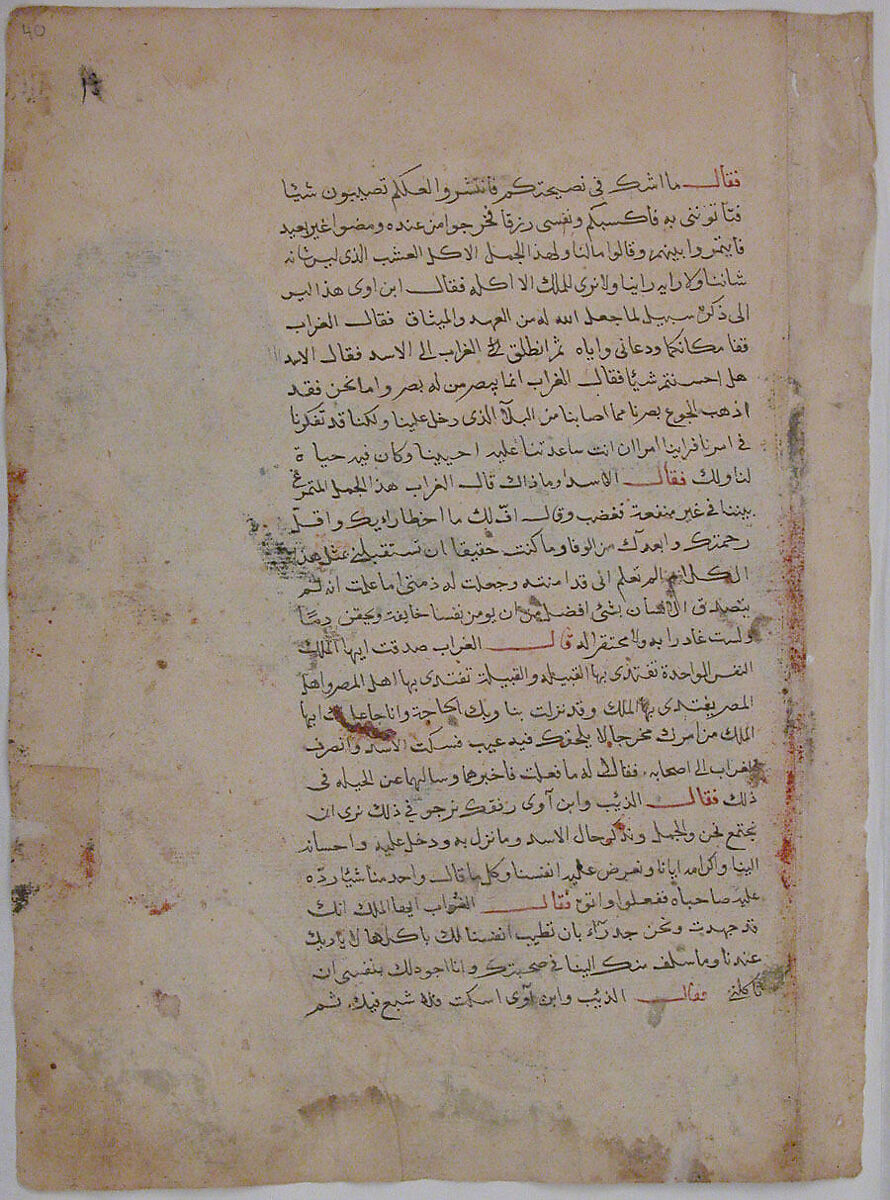 40
فقال ما اشك في نصيحتكم فانتشروا لعلكم تصيبون شيئا
فتاتونني به فاكسبكم ونفسي رزقا فخرجوا من عنده ومضوا غير بعيد
فايتمروا بينهم وقالوا مالنا ولهذا الجمل الاكل العشب الذي ليس شانه
شاننا ولا رايه راينا ولا نرى للملك الا اكله فقال ابن اوى هذا ليس
الى ذكره سبيل لما جعل الله له من العهد والميثاق فقال الغراب
قفا مكانكما ودعاني واياه ثم انطلق الغراب الى الاسد فقال الاسد
هل احسستم شيئا فقال الغراب انما يبصر من له بصر واما نحن فقد
اذهب الجوع بصرنا مما اصابنا من البلآ الذي دخل علينا ولكنا قد تفكرنا
في امرنا فراينا امرا ان انت ساعدتنا عليه احييينا وكان فيه حياة
لنا ولك فقال الاسد وما ذاك قال الغراب هذا الجمل المتمرغ
بيننا في غير منفعة فغضب وقال اف لك ما اخطا رايك واقل
رحمتك وابعدك من الوفا وما كنت حقيقا ان تستقبلني بمثل هذا
الكلام الم تعلم اني قد امنته وجعلت له ذمتي اما علمت انه لم
يتصدق الانسان بشئ افضل من ان يومن نفسا خايفة ويحقن دما
ولست غادرا به ولا محتقرا له قال الغراب صدقت ايها الملك
النفس الواحدة تفتدى بها القبيله والقبيلة تفتدى بها اهل المصر واهل
المصر يفتدى بها الملك وقد نزلت بنا وبك الحاجة وانا جاعل لك ايها
الملك من امرك مخرجا لا يلحقك فيه عيب فسكت الاسد وانصرف
الغراب الى اصحابه فقال له ما فعلت فاخبرهما وسالهما عن الحيله في
ذلك فقال الذئب وابن آوى رفقك نرجو في ذلك نرى ان
نجتمع نحن والجمل ونذكر حال الاسد وما نزل به ودخل عليه واحسانه
الينا واكرامه ايانا ونعرض عليه انفسنا وكل ما قال واحد منا شيئا رده
عليه صاحباه ففعلوا واتو فقال الغراب ايها الملك انك
قد جهدت ونحن جدرآء بان نطيب انفسنا لك باكلها لاياديك
عندنا وما سلف منك الينا في صحبتك وانا اجود لك بنفسي ان
تاكلني فقال الذئب وابن آوى اسكت فلا شبع فيك ثم